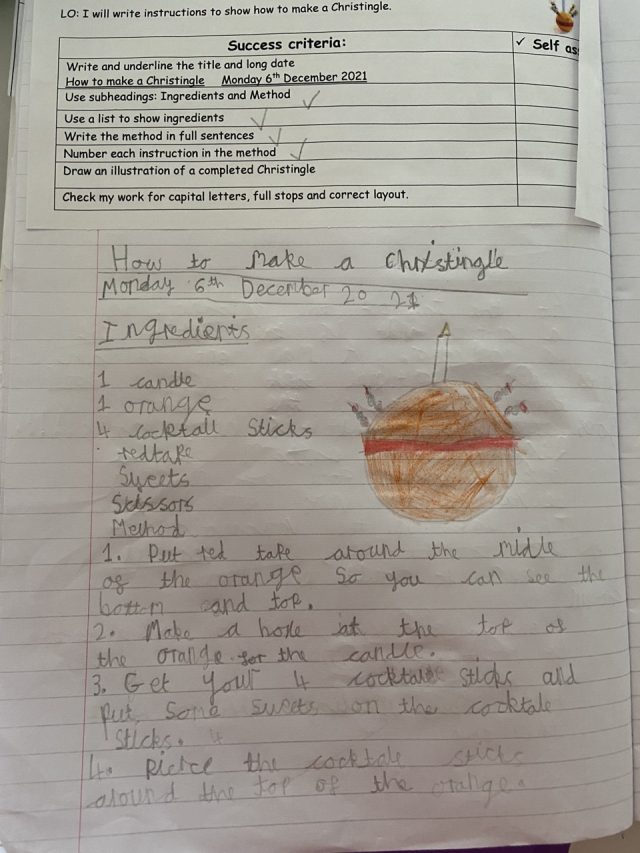 LO: I will write instructions to show how to make a Christingle.
Success criteria:
✓ Self as
Write and underline the title and long date
How to make a Christingle Monday 6th December 2021
Use subheadings: Ingredients and Method
Use a list to show ingredients
Write the method in full sentences
Number each instruction in the method
Draw an illustration of a completed Christingle
Check my work for capital letters, full stops and correct layout.
How to make a Christingle
Monday 6th December 2021
Ingredients
1 candle
1 orange
4 cocktail Sticks
redtape
Sweets
Scissors
Method
1. Put red tape around the midle
of the orange so you can see the
bottom and top.
2. Make a hole at the top of
the orange for the candle.
3. Get your 4 cocktale sticks and
put some sweets on the cocktale
sticks. 4
4. Pierce the cocktale sticks
around the top of the orange.